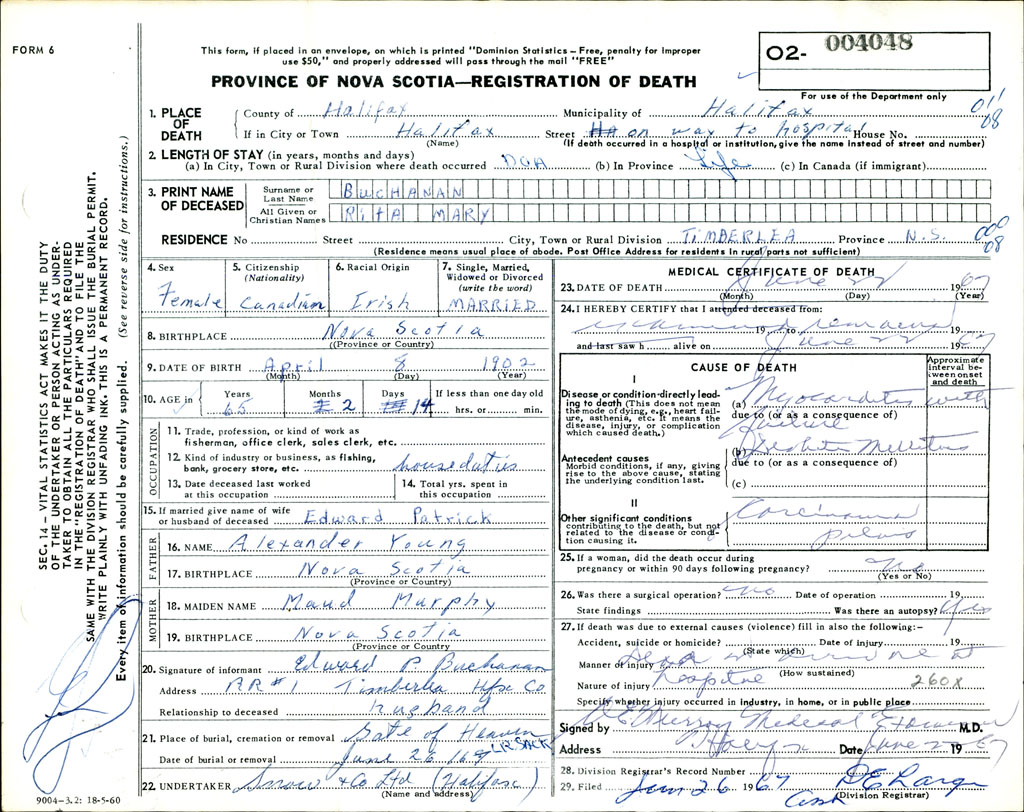 FORM 6
This form, if placed in an envelope, on which is printed "Dominion Statistics – Free, penalty for improper
use $50," and properly addressed will pass through the mail "FREE"
PROVINCE OF NOVA SCOTIA—REGISTRATION OF DEATH
02- 004048
For use of the Department only
011
08
SEC. 14 – VITAL STATISTICS ACT MAKES IT THE DUTY
OF THE UNDERTAKER OR PERSON ACTING AS UNDER-
TAKER TO OBTAIN ALL THE PARTICULARS REQUIRED
IN THE "REGISTRATION OF DEATH" AND TO FILE THE
SAME WITH THE DIVISION REGISTRAR WHO SHALL ISSUE THE BURIAL PERMIT.
WRITE PLAINLY WITH UNFADING INK. THIS IS A PERMANENT RECORD.
Every item of information should be carefully supplied. (See reverse side for instructions.)
1. PLACE OF DEATH
County of Halifax Municipality of Halifax
If in City or Town Halifax Street on way to hospital House No.
(Name) (If death occurred in a hospital or institution, give the name instead of street and number)
2. LENGTH OF STAY (in years, months and days)
(a) In City, Town or Rural Division where death occurred DOA (b) In Province Life (c) In Canada (if immigrant)
3. PRINT NAME OF DECEASED
Surname or Last Name BUCHANAN
All Given or Christian Names RITA MARY
RESIDENCE No Street City, Town or Rural Division TIMBERLEA Province N.S.
000
08
(Residence means place of abode. Post Office Address for residents in rural parts not sufficient)
4. Sex Female
5. Citizenship (Nationality) Canadian
6. Racial Origin Irish
7. Single, Married, Widowed or Divorced (write the word) MARRIED
8. BIRTHPLACE Nova Scotia
(Province or Country)
9. DATE OF BIRTH April 8 1902
(Month) (Day) (Year)
10. AGE in Years 65 Months 2 Days 14 If less than one day old hrs. or min.
OCCUPATION
11. Trade, profession, or kind of work as
fisherman, office clerk, sales clerk, etc.
12. Kind of industry or business, as fishing,
bank, grocery store, etc. houseduties
13. Date deceased last worked at this occupation
14. Total yrs. spent in this occupation
15. If married give name of wife
or husband of deceased Edward Patrick
FATHER
16. NAME Alexander Young
17. BIRTHPLACE Nova Scotia
(Province or Country)
MOTHER
18. MAIDEN NAME Maud Murphy
19. BIRTHPLACE Nova Scotia
(Province or Country
20. Signature of informant Edward P. Buchanan
Address RR#1 Timberlea Hfx Co
Relationship to deceased husband
21. Place of burial, cremation or removal Gate of Heaven
LR SACK
Date of burial or removal June 26 1967
22. UNDERTAKER Snow & Co Ltd (Halifax)
(Name and address)
9004–3.2: 18-5-60
MEDICAL CERTIFICATE OF DEATH
23. DATE OF DEATH June 22 1967
(Month) (Day) (Year)
24. I HEREBY CERTIFY that I attended deceased from:
examined 19 to remains
and last saw h alive on June 22 1967
CAUSE OF DEATH
Approximate interval between onset and death
I
Disease or condition directly lead-
ing to death (This does not mean
the mode of dying, e.g., heart fail-
ure, asthenia, etc. It means the
disease, injury, or complication
which caused death.)
(a) Myocarditis with
due to (or as a consequence of)
failure
(b) Diabetes Mellitus
Antecedent causes
Morbid conditions, if any, giving
rise to the above cause, stating
the underlying condition last.
due to (or as a consequence of)
(c)
II
Other significant conditions
contributing to the death, but not
related to the disease or condi-
tion causing it.
Carcinoma
pelvis
25. If a woman, did the death occur during
pregnancy or within 90 days following pregnancy? No
(Yes or No)
26. Was there a surgical operation? no Date of operation 19
State findings Was there an autopsy? Yes
27. If death was due to external causes (violence) fill in also the following:–
Accident, suicide or homicide? Date of injury 19
(State which)
Manner of injury Dead on arrival at
(How sustained)
Nature of injury hospital 260X
Specify whether injury occurred in industry, in home, or in public place
Signed by Murray Medical Examiner M.D.
Address Halifax Date June 1967
28. Division Registrar's Record Number
29. Filed Jun 26 1967
(Division Registrar)